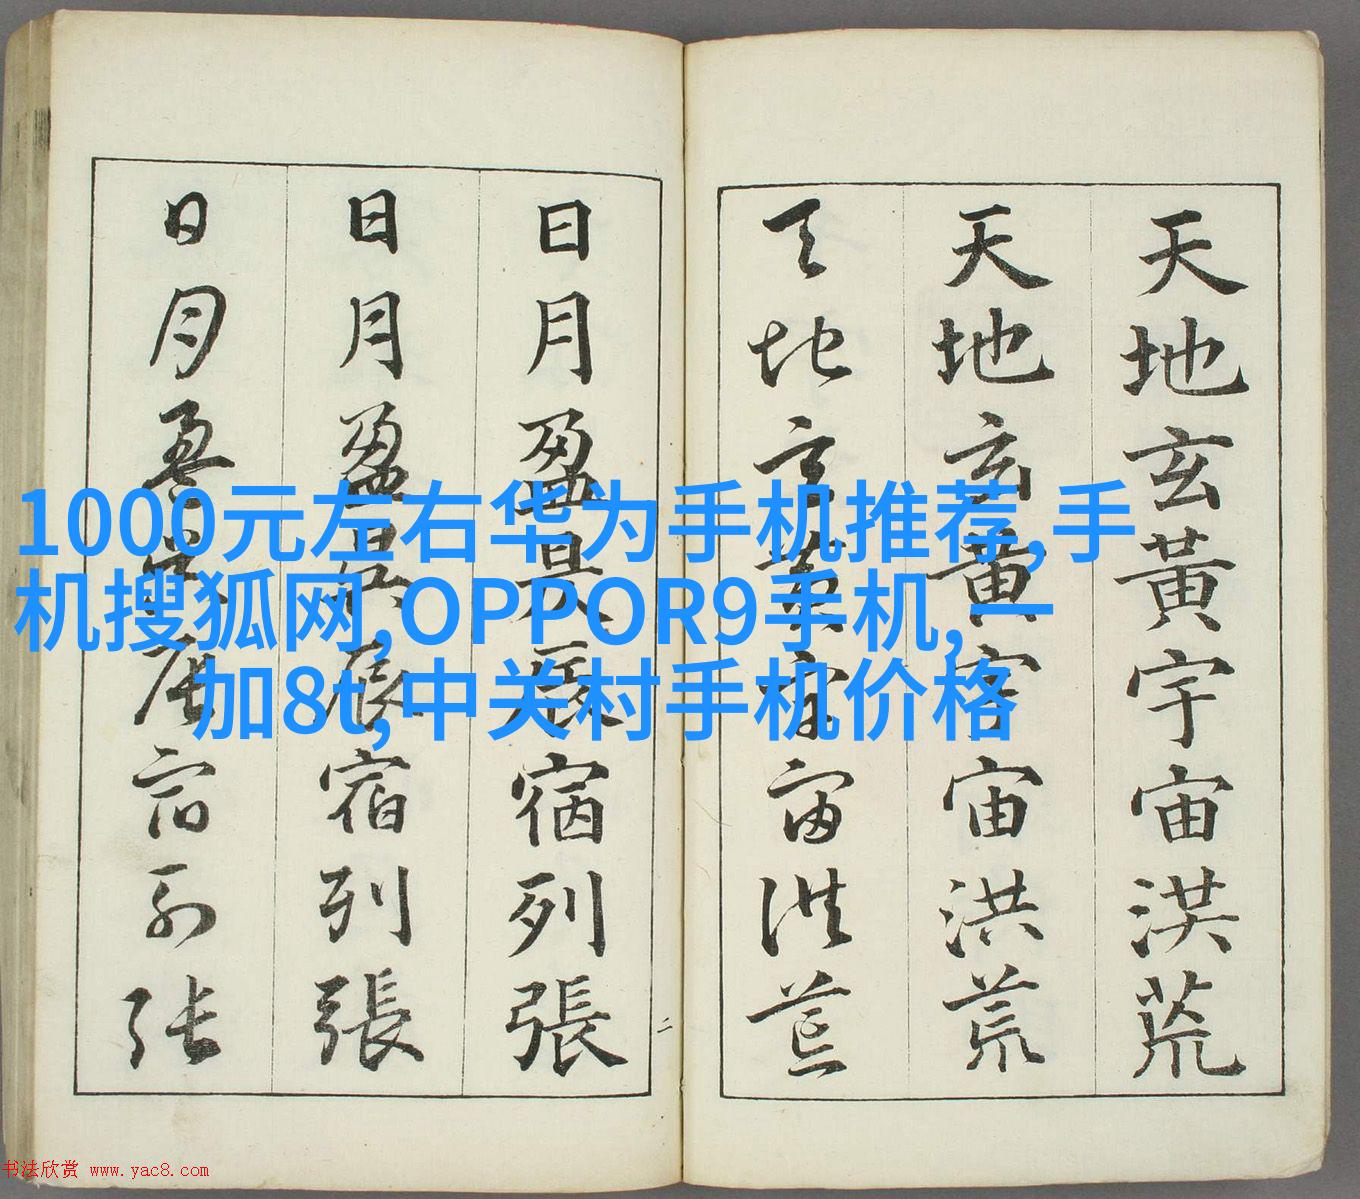 天地玄黃宇宙洪荒
天地玄黃宇宙洪荒
天地玄黃宇宙洪荒
日月盈昃辰宿列張
日月盈昃辰宿列張
日月盈昃辰宿列張
二
1000元左右华为手机推荐,手
机搜狐网,OPPOR9手机,一
加8t,中关村手机价格
书法欣赏 www.yac8.com